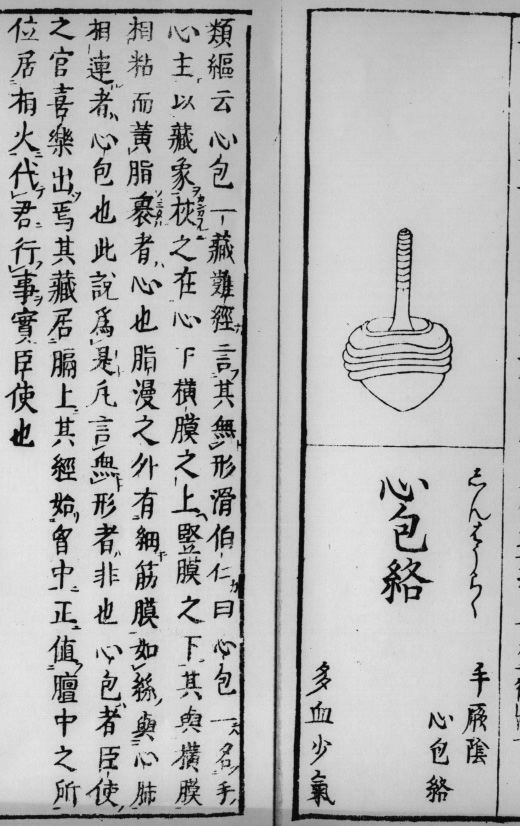 しんはうらく
心包絡
手厥陰
心包絡
多血少氣
類經云心包一藏難經言其無形滑伯仁曰心包一名手
心主以藏象校之在心下橫膜之上竪膜之下其與橫膜
相粘而黃脂裹者心也脂漫之外有細筋膜如絲與心肺
相連者心包也此說爲是凡言無形者非也心包者臣使
之官喜樂出焉其藏居膈上其經始胷中正値膻中之所
位居相火代君行事實臣使也